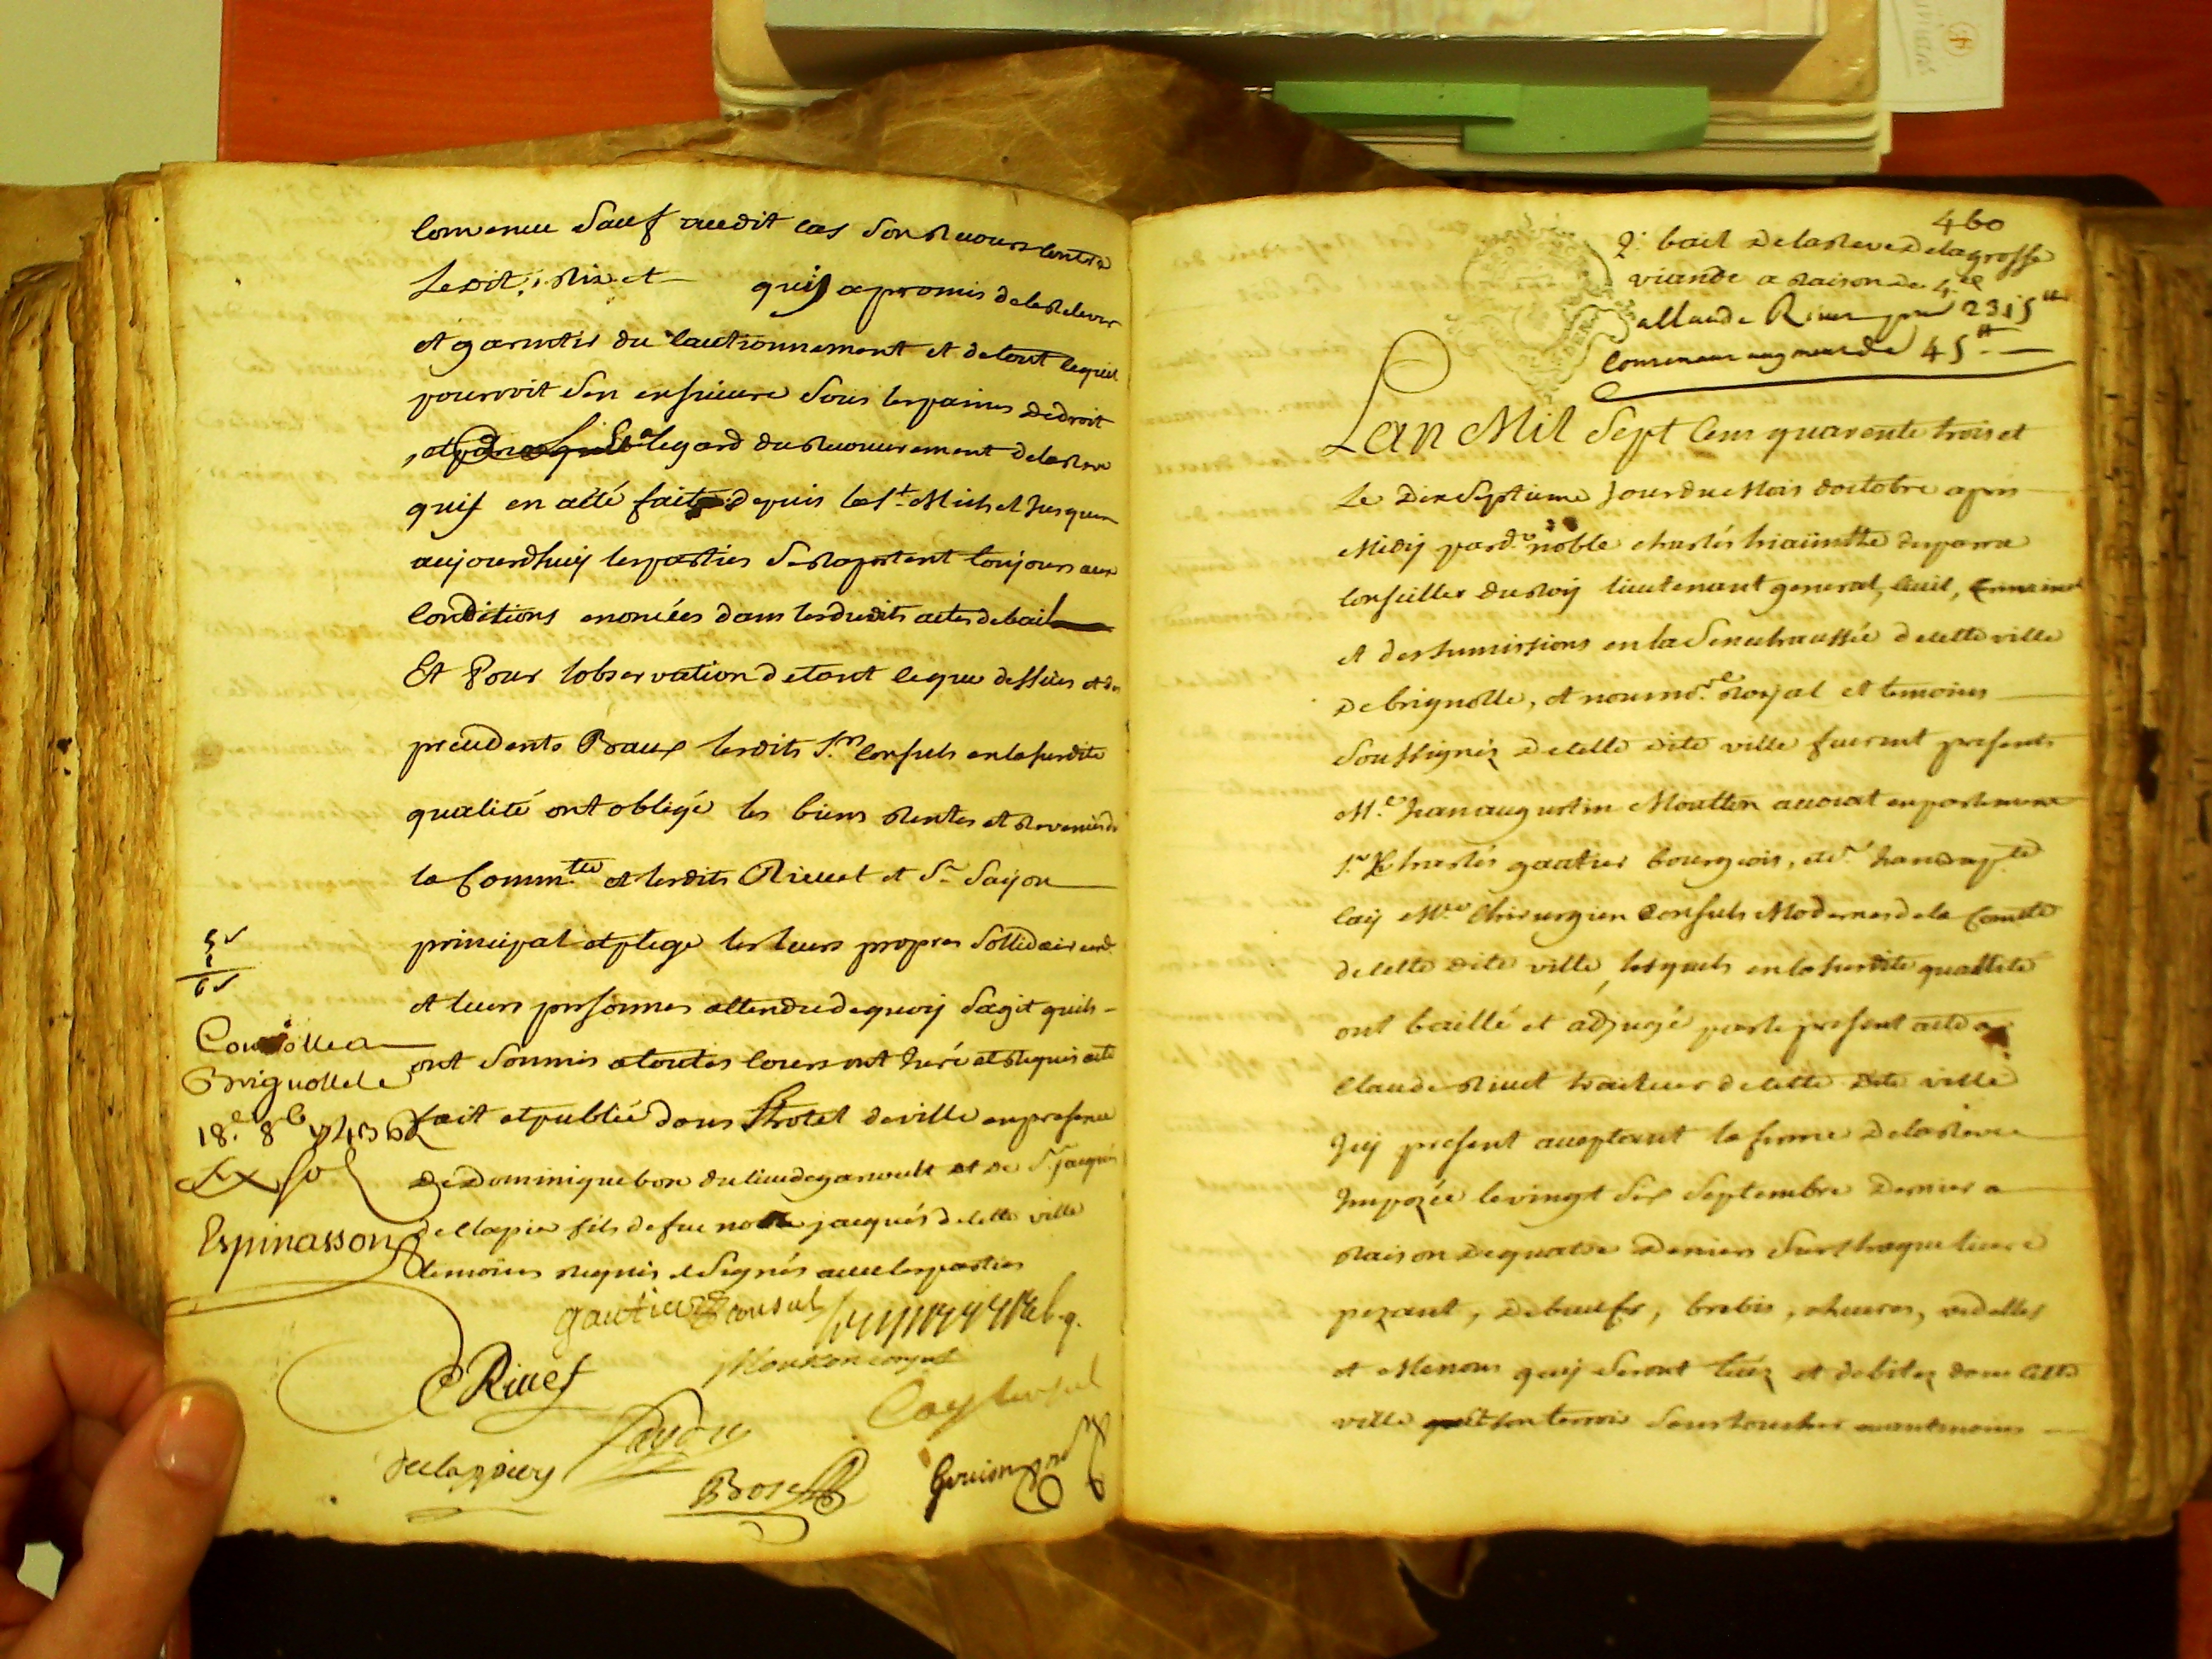 convenu sauf audit cas son recours contre
Ledit Rivet quy a promis de le relever
et garentir du cautionnement et de tout ce quil
pourroit sen ensuivre sous les paines de droit
et a legard du recouvrement de la reve
quy en a été fait depuis la St Michel jusques
aujourdhuy les parties se raportent toujours aux
conditions enoncées dans lesdits actes de bail
Et Pour lobservation de tout ce que dessus et des
precedents Baux lesdits Srs Consuls en lasusdite
qualité ont obligé les biens rentes et revenus de
la Commté et lesdits Rivet et Sr Sayou
principal et plege les leurs propres sollidairemt
et leurs personnes attendu de quoy sagit quils
ont soumis a toutes cours ont juré et requis acte
fait et publié dans lhotel de ville en presence
de Dominique bon du lieu de garoult et de Sr jacques
de clapier fils de feu noble jacques de cette ville
temoins requis et signés avec les parties
Brignolle le
18e 8bre 1743
Espinasson
gautier Consul
Moutton consul
C Rivet
Cay Consul
declapiers
460
2e bail de la reve de la grosse
viande a raison de 4 d
a Claude Rivet pour 2315 tt
45 tt
Lan Mil Sept Cens quarente trois et
Le Dix Septieme jour du Mois doctobre apres
Midy pardt noble charles hiacinthe desparra
Conseiller du Roy lieutenant general, civil, criminel
et des sumissions en la Senechaussée de cette ville
de brignolle, et nous nore Royal et temoins
Soussignéz de cette dite ville furent presents
Me Jean augustin Moutton avocat en parlement
Sr Charles gautier bourgeois, et Sr Jean bapte
Cay Me Chirurgien Consuls Modernes de la Comté
de cette dite ville, lesquels en lasusdite quallité
ont baillé et adjugé par le present acte a
Claude Rivet traiteur de cette dite ville
Icy present acceptant la ferme de la reve
Imposée le vingt Six Septembre Dernier a
raison de quatre Deniers Sur chaque livre
pezant, de bœufs, brebis, chevres, vedelles
et Menons quy Seront tuéz et debitéz dans cette
ville et son terroir Sans toucher neantmoins